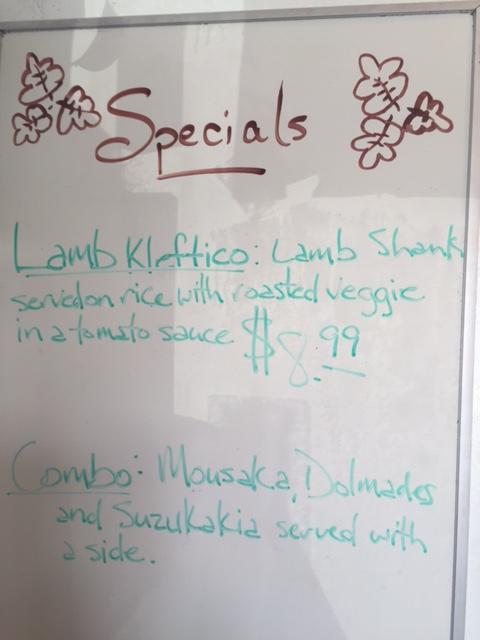 Specials
Lamb Kleftico: Lamb Shank
served on rice with roasted veggie
in a tomato sauce $8.99
Combo: Mousaka, Dolmades
and Suzukakia served with
a side.